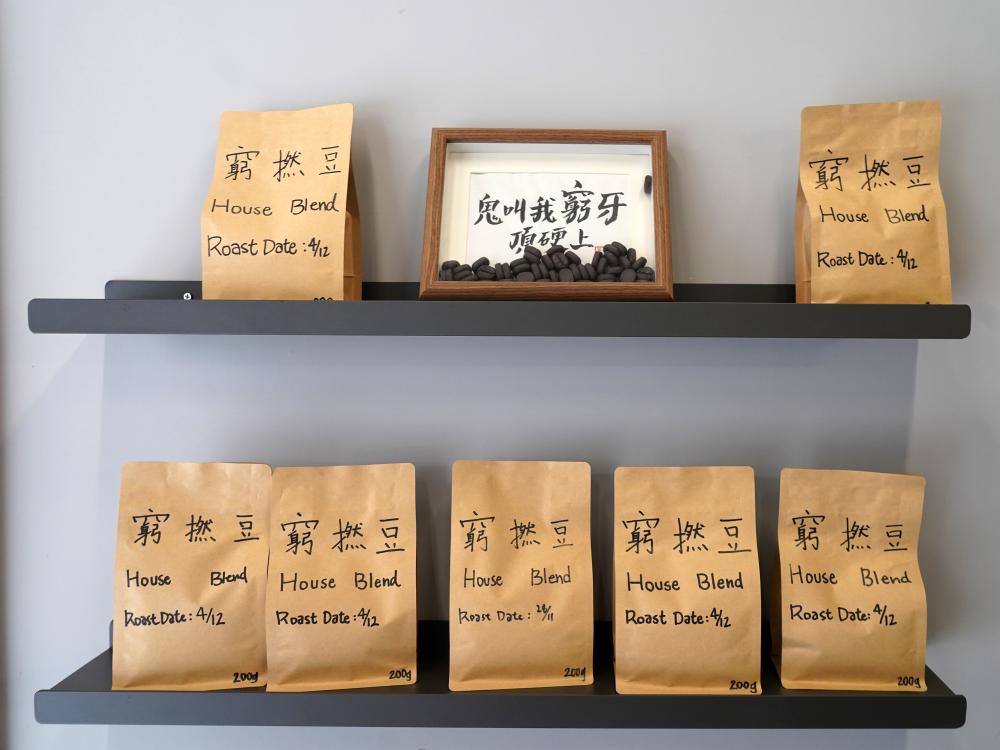 窮撚豆
House Blend
Roast Date: 4/12
鬼叫我窮牙
頂硬上
窮撚豆
House Blend
Roast Date: 4/12
窮撚豆
House Blend
Roast Date: 4/12
200g
窮撚豆
House Blend
Roast Date: 4/12
200g
窮撚豆
House Blend
Roast Date: 26/11
200g
窮撚豆
House Blend
Roast Date: 4/12
200g
窮撚豆
House Blend
Roast Date: 4/12
200g